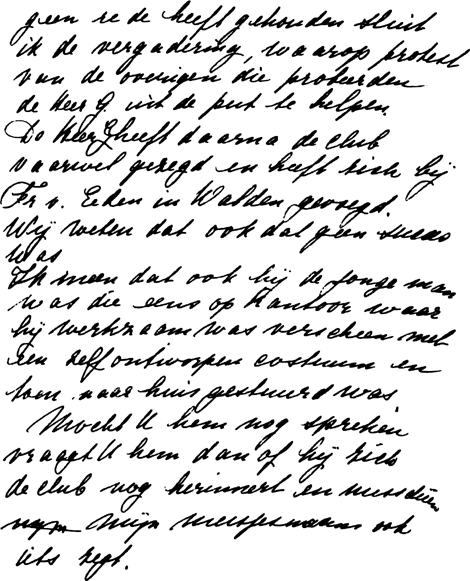 geen re de heeft gehouden sluit
ik de vergadering, waarop protest
van de overigen die probeerden
de Heer G. uit de put te helpen.
De Heer G heeft daarna de club
vaarwel gezegd en heeft zich bij
Fr v. Eeden in Walden gevoegd.
Wij weten dat ook dat geen succes
was
Ik meen dat ook hij de jonge man
was die eens op kantoor waar
hij werkzaam was verscheen met
een zelfontworpen costuum en
toen naar huis gestuurd was
Mocht U hem nog spreken
vraagt U hem dan of hij zich
de club nog herinnert en misschien
mijn meisjesnaam ook
iets zegt.